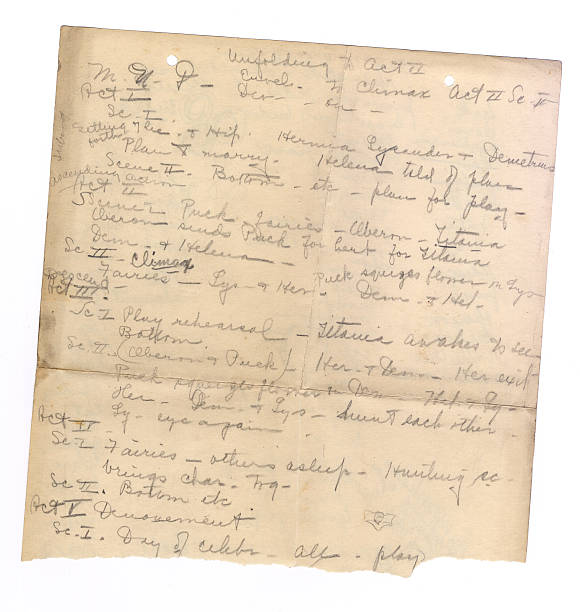 Unfolding to Act II
M. N. D - Envel. to Climax Act II Sc. II
Act I Dev - on -
Sc. I.
Setting forth Thes. & Hip. Hermia Lysander & Demetrius
Plan to marry. Helena told of plan
Scene II. Bottom - etc - plan for play -
ascending action
Act II
Scene I Puck fairies - Oberon - Titania
Oberon sends Puck for herb for Titania
Dem - & Helena -
Sc II - Climax Puck squizes flower on Lys
Fairies - Lys - & Her. Dem. & Hel.
Descend -
Act III.
Sc. I Play rehearsal - Titania awakes to see
Bottom.
Sc. II. (Oberon & Puck) - Her. & Dem. - Her exit
Puck squizes flower on Dem. Hel. & Ly -
Her - Dem. & Lys - hunt each other -
Ly - eye again
Act IV
Sc. I Fairies - others asleep - Hunting sc -
brings char. tog -
Sc II. Bottom etc
Act V Denouement
Sc. I. Day of celebr - all - play